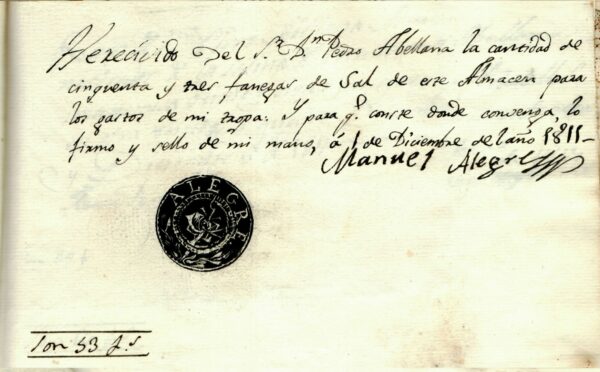 He recivido del S.r D.n Pedro Abellana la cantidad de
cinquenta y tres fanegas de Sal de este Almacen para
los gastos de mi tropa: Y para q.e conste donde convenga, lo
firmo y sello de mi mano, á 1 de Diciembre del año 1811-
Manuel Alegre
ALEGRE
Son 53 f.s